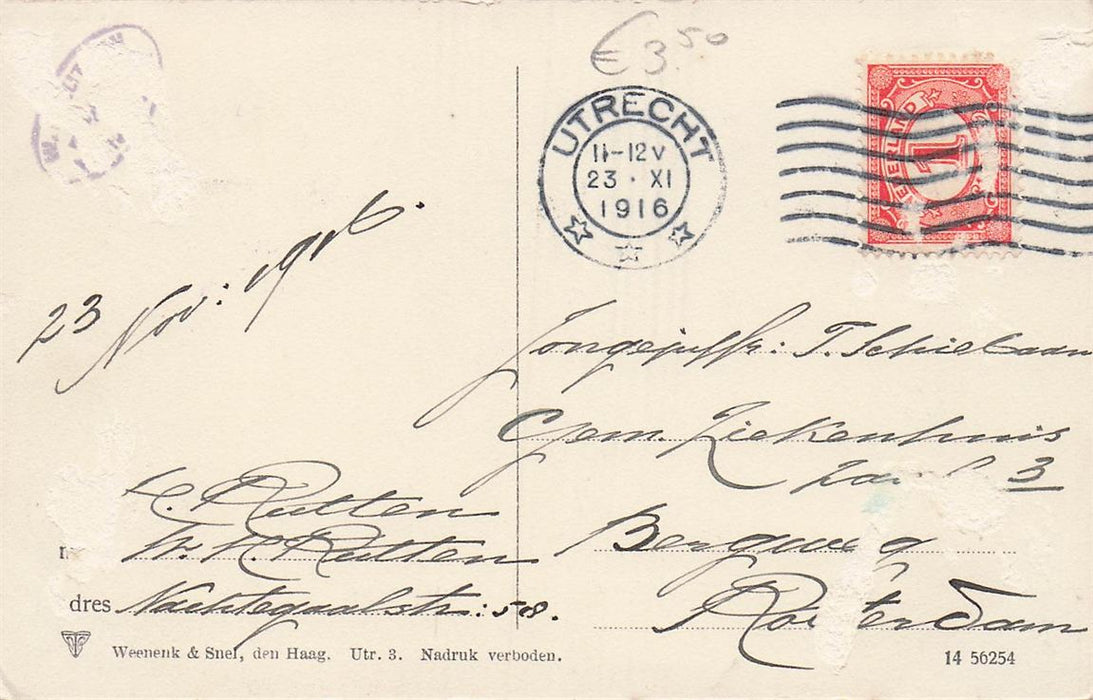 € 3.50
UTRECHT
11-12V
23 · XI
1916
NEDERLAND
1
23 Nov: 1916.
Jongejuffr: T. Schielaan
Gem. Ziekenhuis
3
Bergweg
Rotterdam
Rutten
Rutten
dres Nachtegaalstr: 58.
Weenenk & Snel, den Haag. Utr. 3. Nadruk verboden.
14 56254